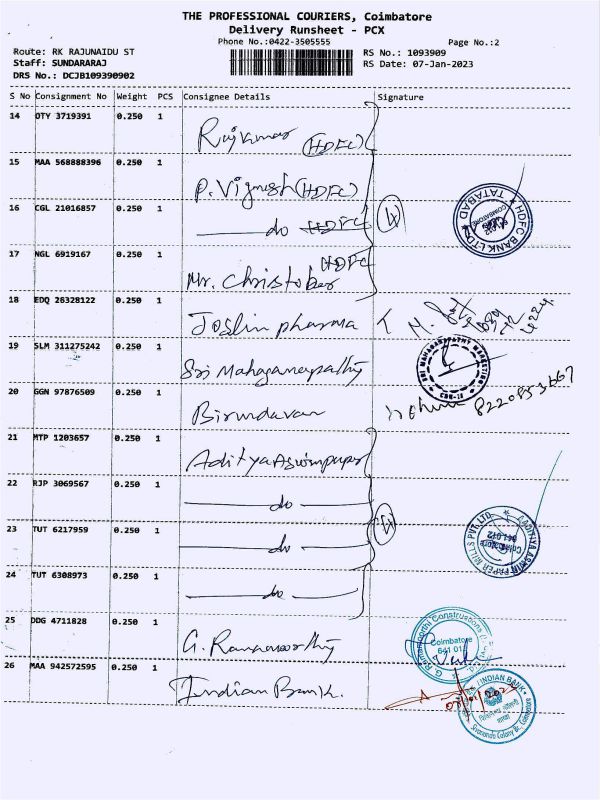 THE PROFESSIONAL COURIERS, Coimbatore
Delivery Runsheet - PCX
Phone No.:0422-3505555
Page No.:2
Route: RK RAJUNAIDU ST
RS No.: 1093909
Staff: SUNDARARAJ
RS Date: 07-Jan-2023
DRS No.: DCJB109390902
S No Consignment No Weight PCS Consignee Details Signature
14 OTY 3719391 0.250 1 Rajkumar (HDFC)
15 MAA 568888396 0.250 1 P. Vignesh (HDFC)
16 CGL 21016857 0.250 1 do HDFC (4)
HDFC BANK LTD. TATABAD COIMBATORE 641 012
17 NGL 6919167 0.250 1 HDFC
Mr. Christober
18 EDQ 26328122 0.250 1 Joslin pharma
19 SLM 311275242 0.250 1 Sri Mahaganapathy
SRI MAHAGANAPATHY MARKETING CBE-12
20 GGN 97876509 0.250 1 Birundavan 8220853667
21 MTP 1203657 0.250 1 Aditya Aswinpaper
22 RJP 3069567 0.250 1 do
23 TUT 6217959 0.250 1 do (4)
AADITHYA ASWIN PAPER MILLS PVT. LTD. Coimbatore 641 012
24 TUT 6308973 0.250 1 do
25 DDG 4711828 0.250 1 G. Ramamoorthy
G. Ramamoorthi Constructions (I) Coimbatore 641 012
26 MAA 942572595 0.250 1 Indian Bank.
INDIAN BANK Sivananda Colony Br., Coimbatore